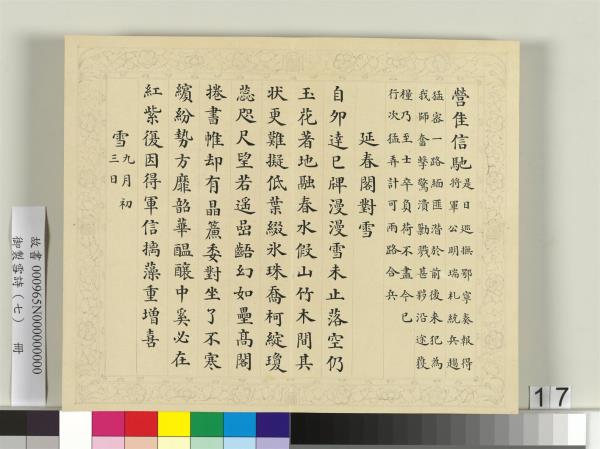 營隹信馳是日巡撫鄂寧奏報得
將軍公明瑞札統兵趨
猛密一路緬匪潛於前後來犯為
我師奮擊驚潰勦戮甚夥沿途獲
糧乃至士卒負荷不盡今已
行次猛弄計可兩路合兵
延春閣對雪
自夘達巳牌漫漫雪未止落空仍
玉花著地融春水假山竹木間其
狀更難擬低葉綴氷珠喬柯綻瓊
蕊咫尺望若遙嵒齬幻如壘高閣
捲書帷却有晶簾委對坐了不寒
繽紛勢方靡韶華醖釀中奚必在
紅紫復因得軍信摛藻重增喜
雪九月初
三日
故書 000965N000000000
御製雪詩（七） 冊
17